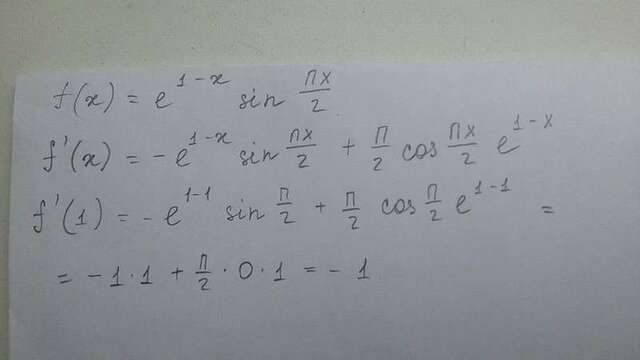 f(x) = e^{1-x} sin πx/2
f'(x) = -e^{1-x} sin πx/2 + π/2 cos πx/2 e^{1-x}
f'(1) = -e^{1-1} sin π/2 + π/2 cos π/2 e^{1-1} =
= -1·1 + π/2·0·1 = -1